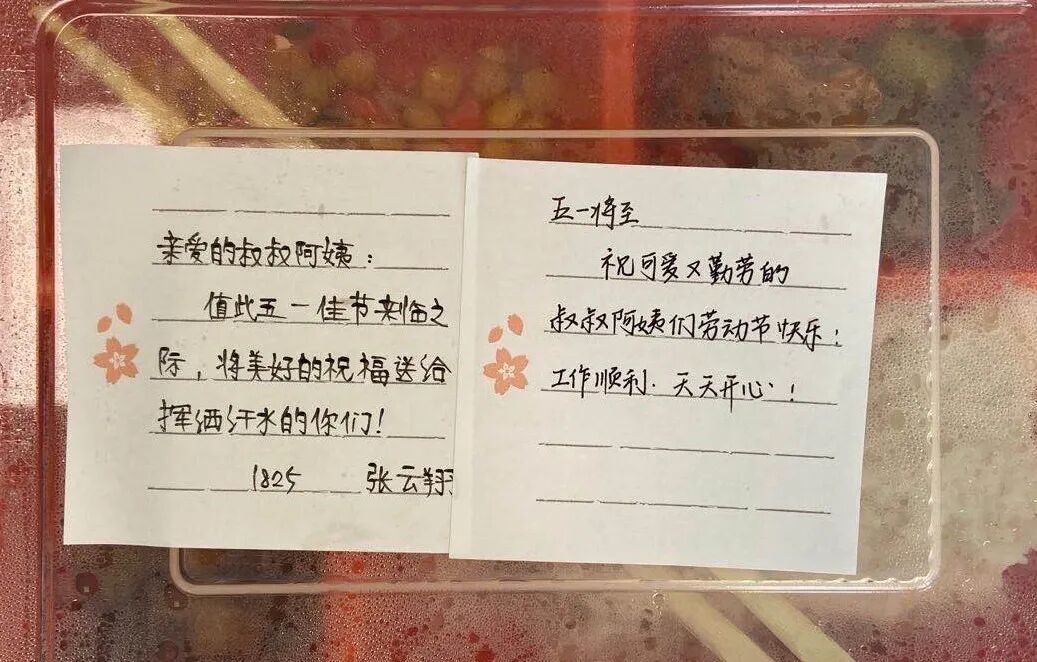 亲爱的叔叔阿姨：
值此五一佳节来临之
际，将美好的祝福送给
挥洒汗水的你们！
1825 张云翔
五一将至
祝可爱又勤劳的
叔叔阿姨们劳动节快乐；
工作顺利．天天开心！